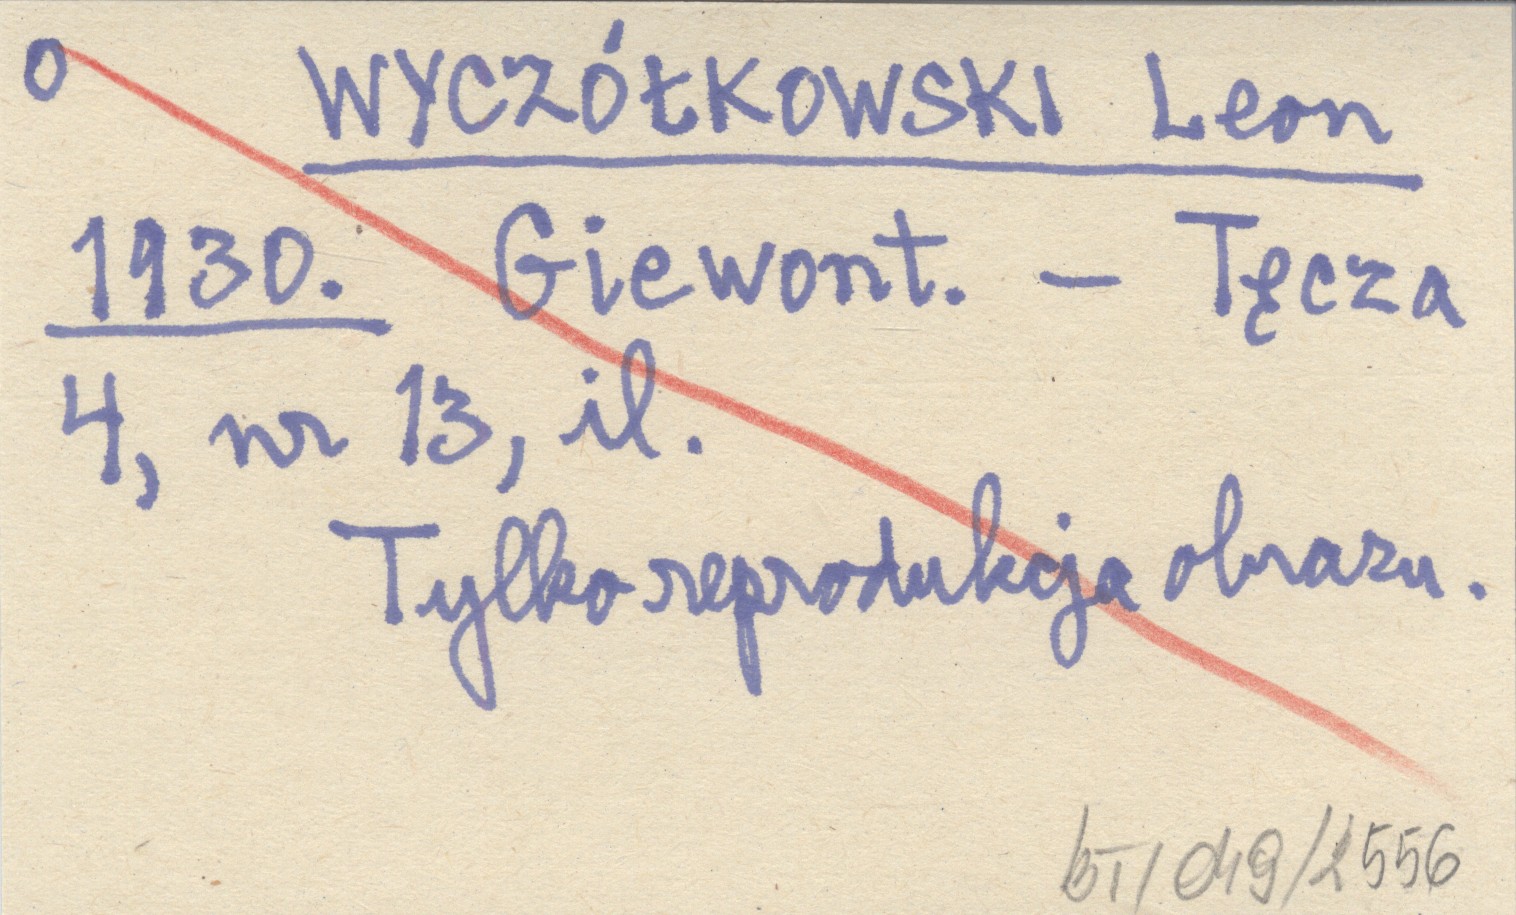 O WYCZÓŁKOWSKI Leon
1930. Giewont. – Tęcza
4, nr 13, il.
Tylko reprodukcja obrazu.
bT/049/2556